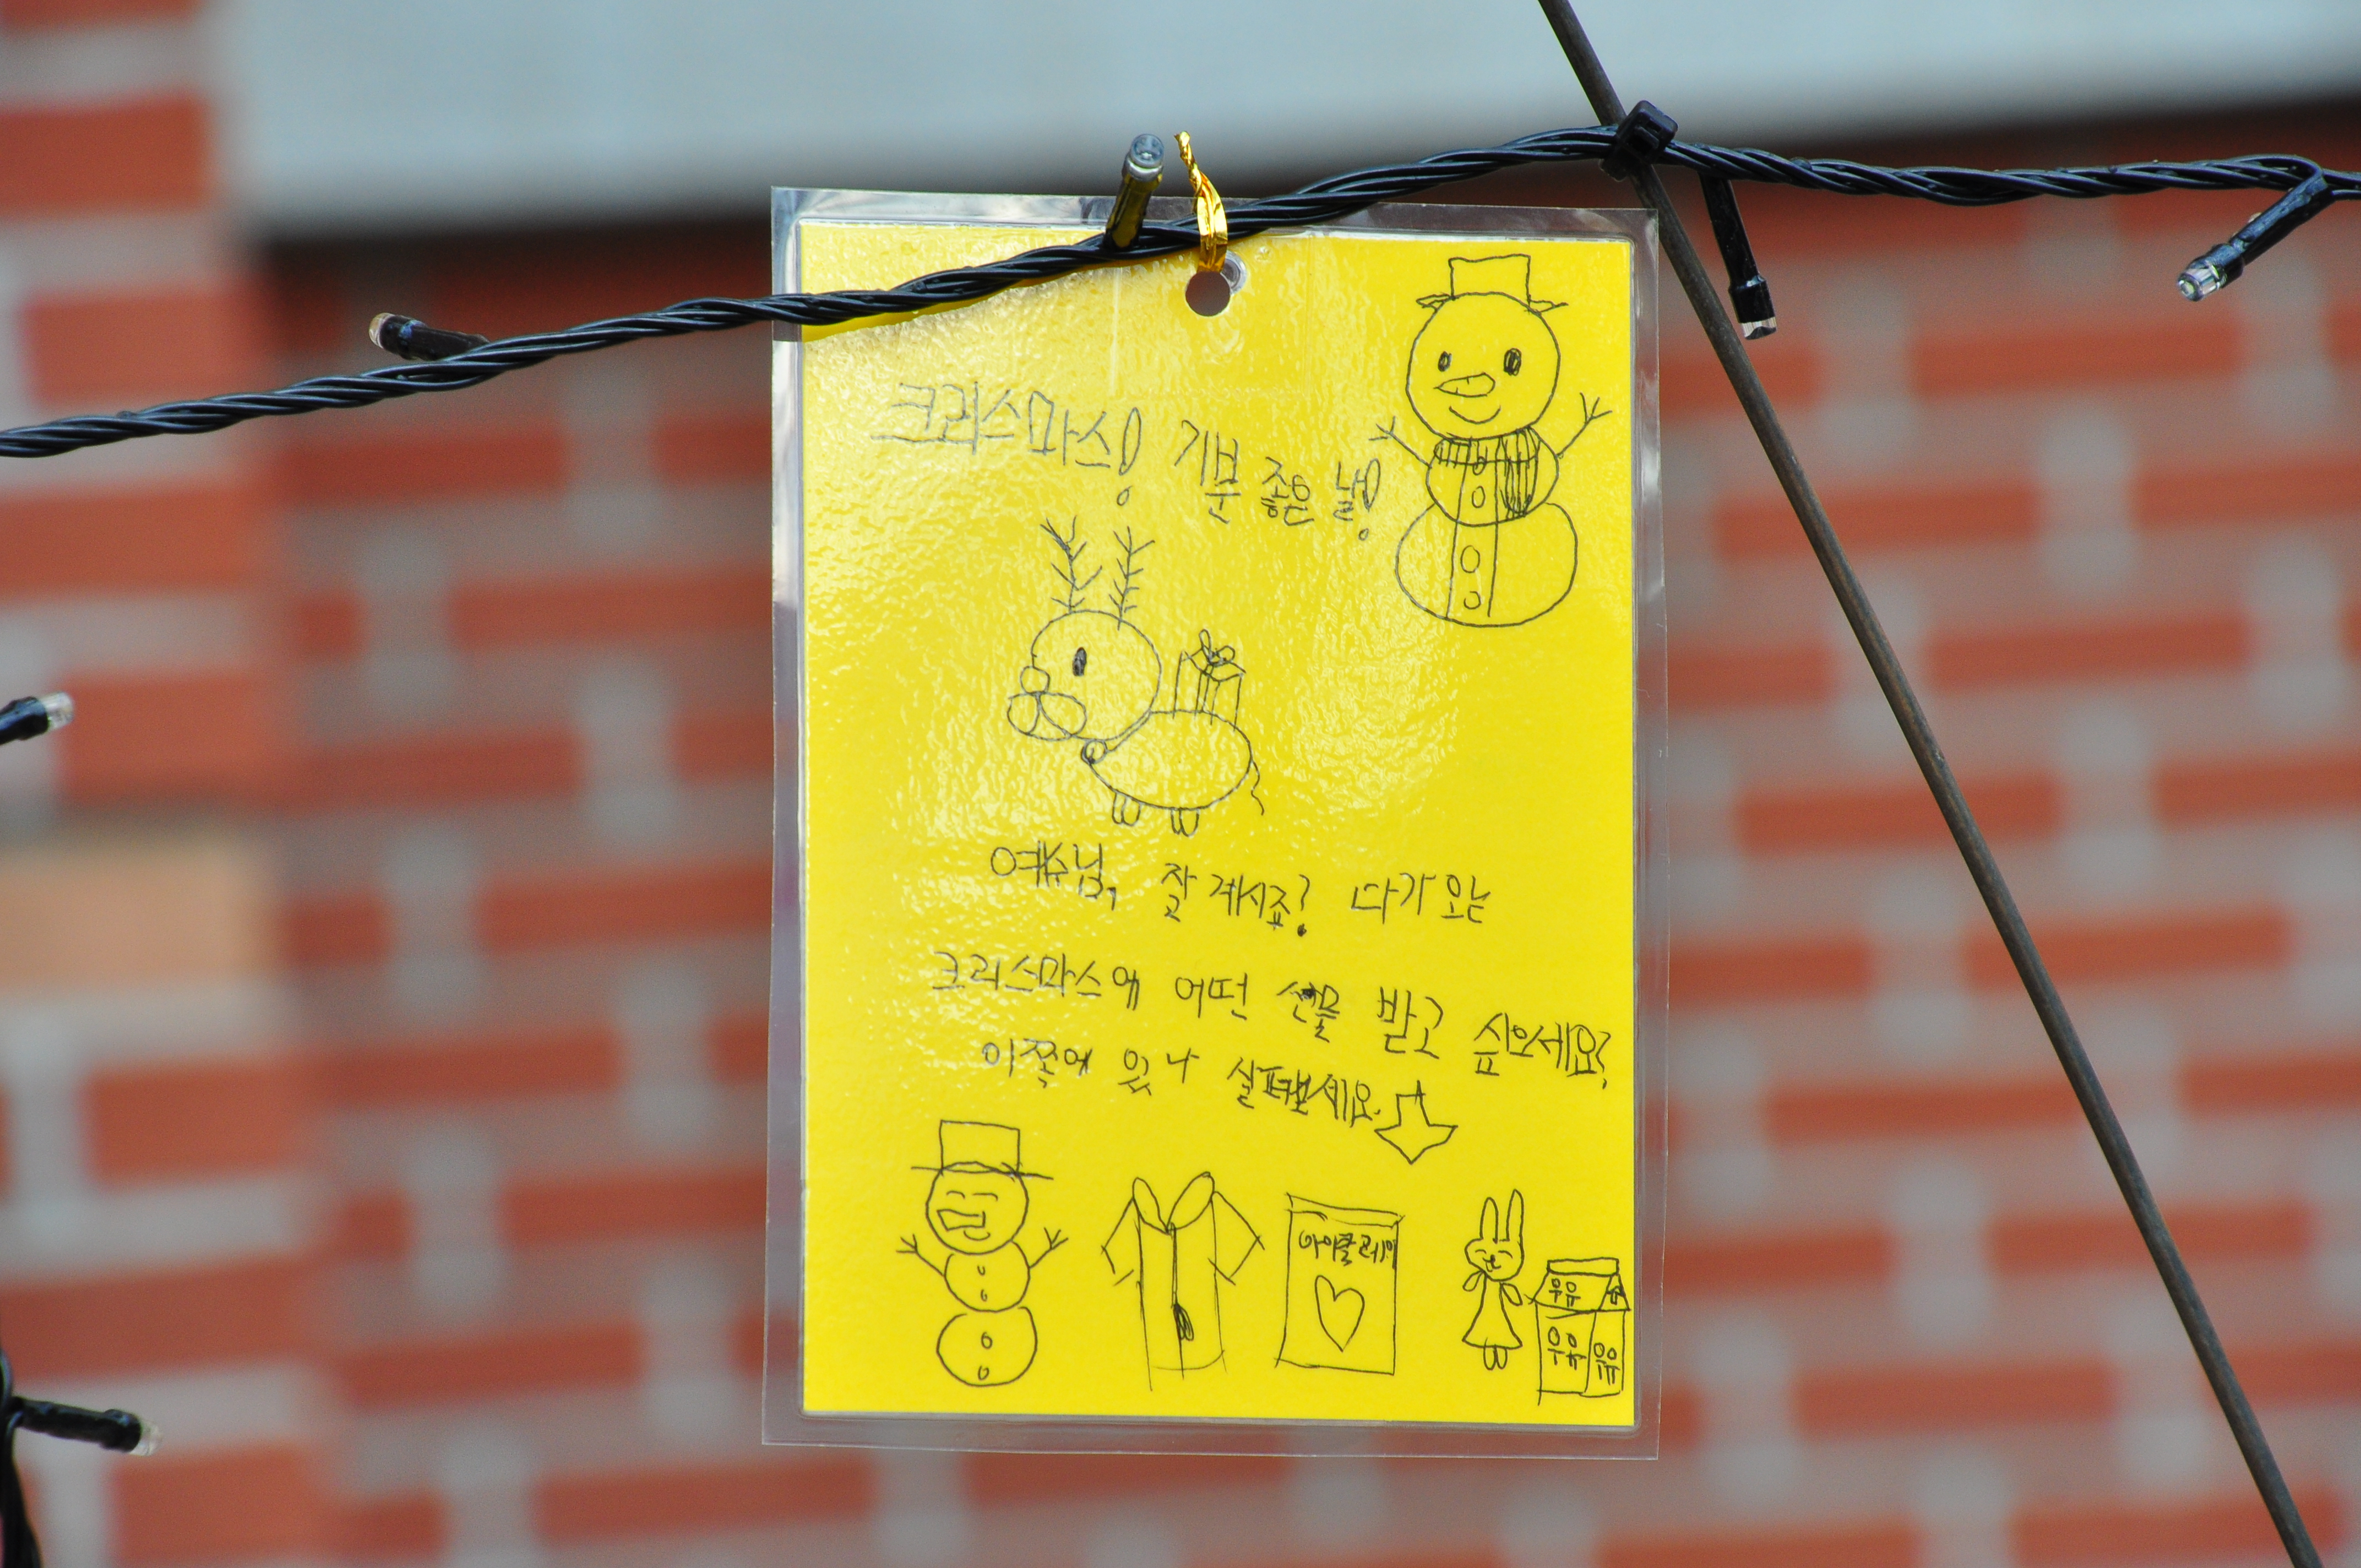 크리스마스! 기분 좋은 날!
예수님, 잘 계시죠? 다가오는
크리스마스에 어떤 선물 받고 싶으세요?
이 쪽에 있나 살펴보세요.
아이클레이
우유
우유
우유